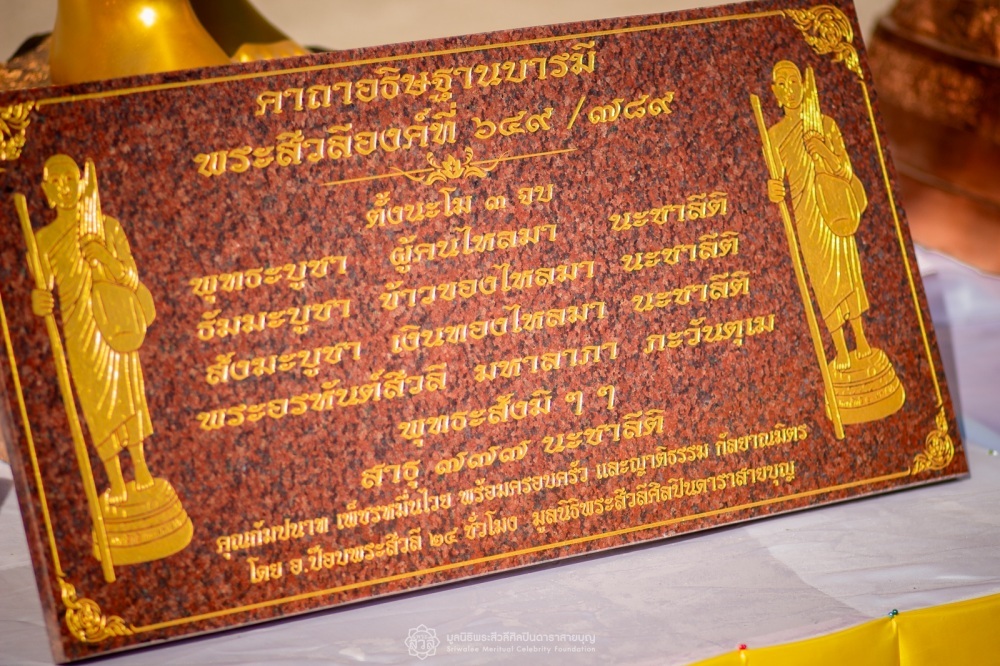 คาถาอธิษฐานบารมี
พระสีวลีองค์ที่ ๖๔๙ /๗๘๙
ตั้งนะโม ๓ จบ
พุทธะบูชา ผู้คนไหลมา นะชาลีติ
ธัมมะบูชา ข้าวของไหลมา นะชาลีติ
สังฆะบูชา เงินทองไหลมา นะชาลีติ
พระอรหันต์สีวลี มหาลาภา ภะวันตุเม
พุทธะสังมิ ๆ ๆ
สาธุ ๗๗๗ นะชาลีติ
คุณกัมปนาท เพ็ชรหมื่นไวย พร้อมครอบครัว และญาติธรรม กัลยาณมิตร
โดย อ.ป๊อบพระสีวลี ๒๔ ชั่วโมง มูลนิธิพระสีวลีศิลปินดาราสายบุญ
มูลนิธิพระสีวลีศิลปินดาราสายบุญ
Sriwalee Meritual Celebrity Foundation